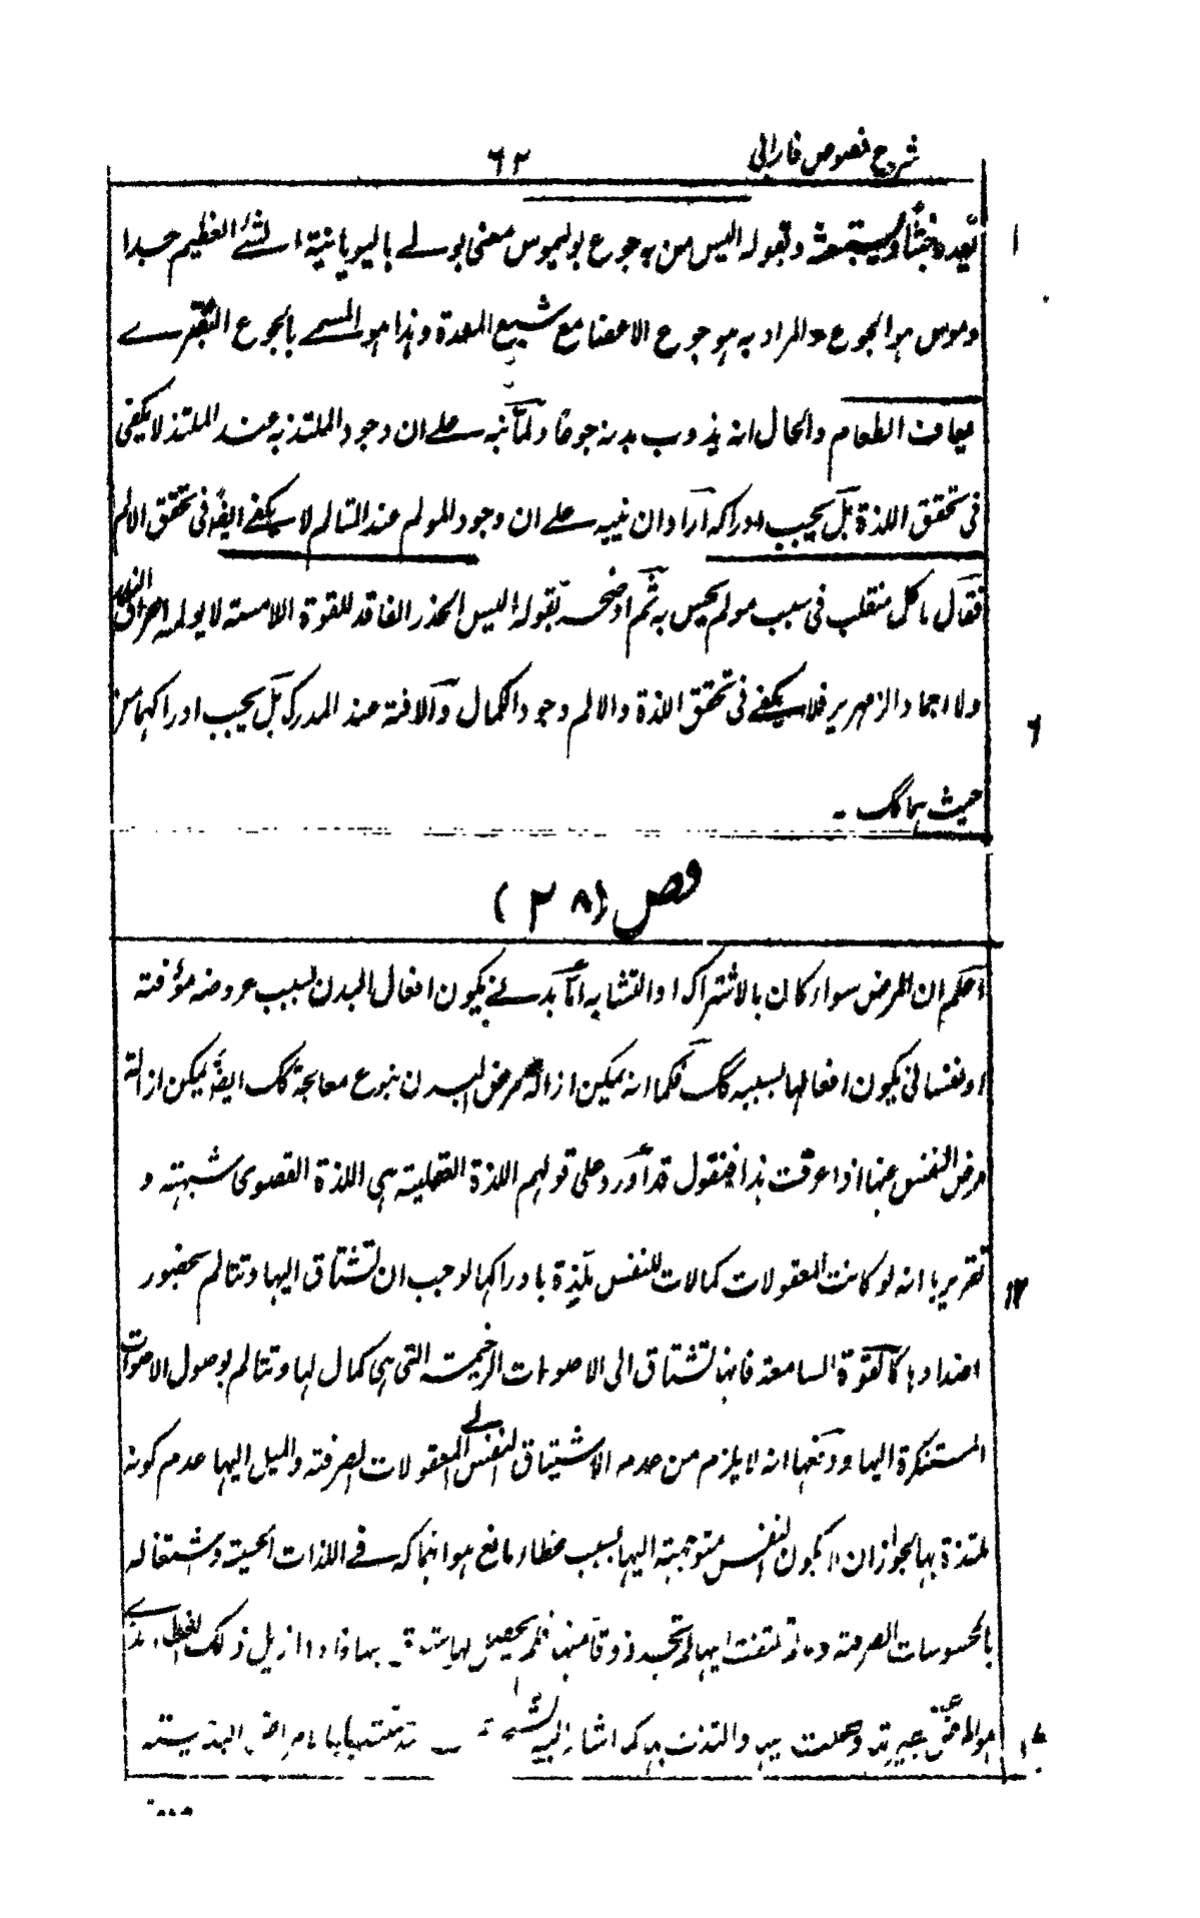 شرح فصوص فارابی ٦٢
يعده خبثا ويستبعثه وبقوله اليس من به جوع بوليموس معنی بولے باليونانية الشئ العظيم جدا ١
وموس هو الجوع والمراد به هو جوع الاعضا مع شبع المعدة وهذا هو المسمے بالجوع البقرے
يعاف الطعام والحال انه يذوب بدنه جوعا ولما نبه علے ان وجود الملتذ به عند الملتذ لا يكفی
فی تحقق اللذة بل يجب ادراكه اراد ان ينبه علے ان وجود المولم عند المتالم لا يكفے ايضً فی تحقق الالم
فقال ما كل منقلب فی سبب مولم يحس به ثم اوضحه بقوله اليس الخدر الفاقد للقوة اللامسة لا يولمه احراق النار
ولا اجماد الزمهرير فلا يكفے فی تحقق اللذة والالم وجود الكمال والآفة عند المدرك بل يجب ادراكهما من ٦
حيث هما كك ۔
فص (٢٨)
اعلم ان المرض سواء كان بالاشتراك او التشابه اما بدنے يكون افعال البدن بسبب عروضه مؤفة
او نفسانی يكون افعالها بسببه كك فكما انه يمكن ازالة مرض البدن بنوع معالجة كك ايضً يمكن ازالة
مرض النفس عنها اذا عرفت هذا فنقول قد اورد علی قولهم اللذة العقلية هی اللذة القصوی شبهة و
تقريرها انه لو كانت المعقولات كمالات للنفس ملذة بادراكها لوجب ان تشتاق اليها وتتالم بحضور ١٢
اضدادها كالقوة السامعة فانها تشتاق الی الاصوات الرخيمة التی هی كمال لها وتتالم بوصول الاصوات
المستنكرة اليها ودفعها انه لا يلزم من عدم الاشتياق النفس الے المعقولات الصرفة والميل اليها عدم كونه
ملتذة بها لجواز ان لا يكون النفس متوجهة اليها بسبب غطاء مانع هو انهماكه فے اللذات الحسية واشتغاله
بالمحسوسات الصرفة وما لم تلتفت اليها لم تجد ذوقا منها فلم يحصل لها بها فاذا ازيل ذلك الغطاء
وعلمت بها والتذت بها كما اشار اليه الشيخ البدنية